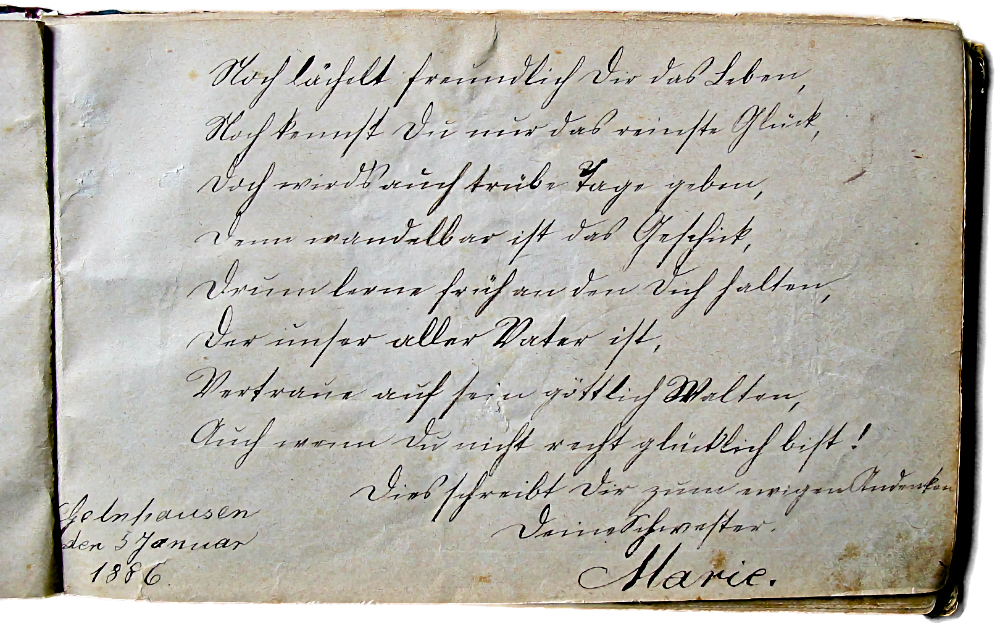 Noch lächelt freundlich Dir das Leben,
Noch kennst Du nur das reinste Glück,
Doch wirds auch trübe Tage geben,
Denn wandelbar ist das Geschick,
Drum lerne früh an den Dich halten,
Der unser aller Vater ist,
Vertraue auf sein göttlich Walten,
Auch wenn Du nicht recht glücklich bist!
Dies schreibt Dir zum ewigen Andenken
Deine Schwester.
Marie.
Gelnhausen
den 5 Januar
1886.